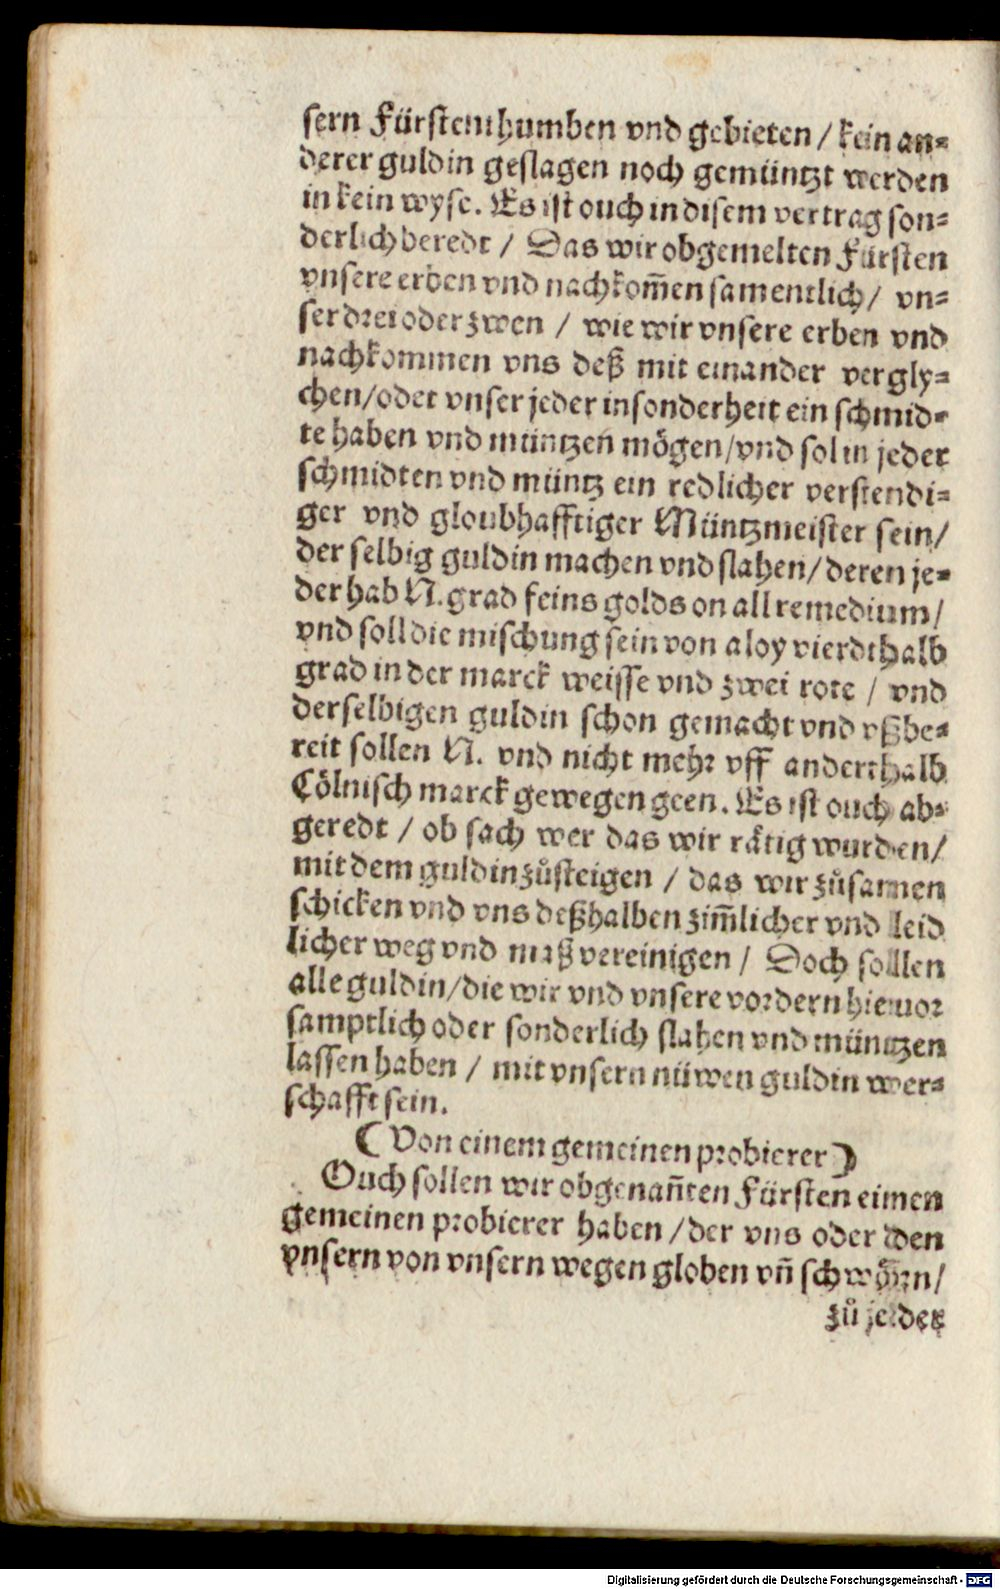 sern Fürstenthumben vnd gebieten / kein an=
derer guldin geslagen noch gemüntzt werden
in kein wyse. Es ist ouch in disem vertrag son=
derlich beredt / Das wir obgemelten Fürsten
vnsere erben vnd nachkom̄en samentlich / vn=
ser drei oder zwen / wie wir vnsere erben vnd
nachkommen vns deß mit einander vergly=
chen/oder vnser jeder insonderheit ein schmid=
te haben vnd müntzen mögen/vnd sol in jeder
schmidten vnd müntz ein redlicher verstendi=
ger vnd gloubhafftiger Müntzmeister sein/
der selbig guldin machen vnd slahen/deren je=
der hab N. grad feins golds on all remedium/
vnd soll die mischung sein von aloy vierdthalb
grad in der marck weisse vnd zwei rote / vnd
derselbigen guldin schon gemacht vnd vßbe=
reit sollen N. vnd nicht mehr vff anderthalb
Cölnisch marck gewegen geen. Es ist ouch ab=
geredt / ob sach wer das wir rätig wurden/
mit dem guldin zůsteigen / das wir zůsamen
schicken vnd vns deßhalben zim̄licher vnd leid
licher weg vnd maß vereinigen / Doch sollen
alle guldin/die wir vnd vnsere vordern hieuor
samptlich oder sonderlich slahen vnd müntzen
lassen haben / mit vnsern nüwen guldin wer=
schafft sein.
(Von einem gemeinen probierer)
Ouch sollen wir obgenan̄ten Fürsten einen
gemeinen probierer haben /der vns oder den
vnsern von vnsern wegen globen vn̄ schwörn/
zů jeder
Digitalisierung gefördert durch die Deutsche Forschungsgemeinschaft - DFG